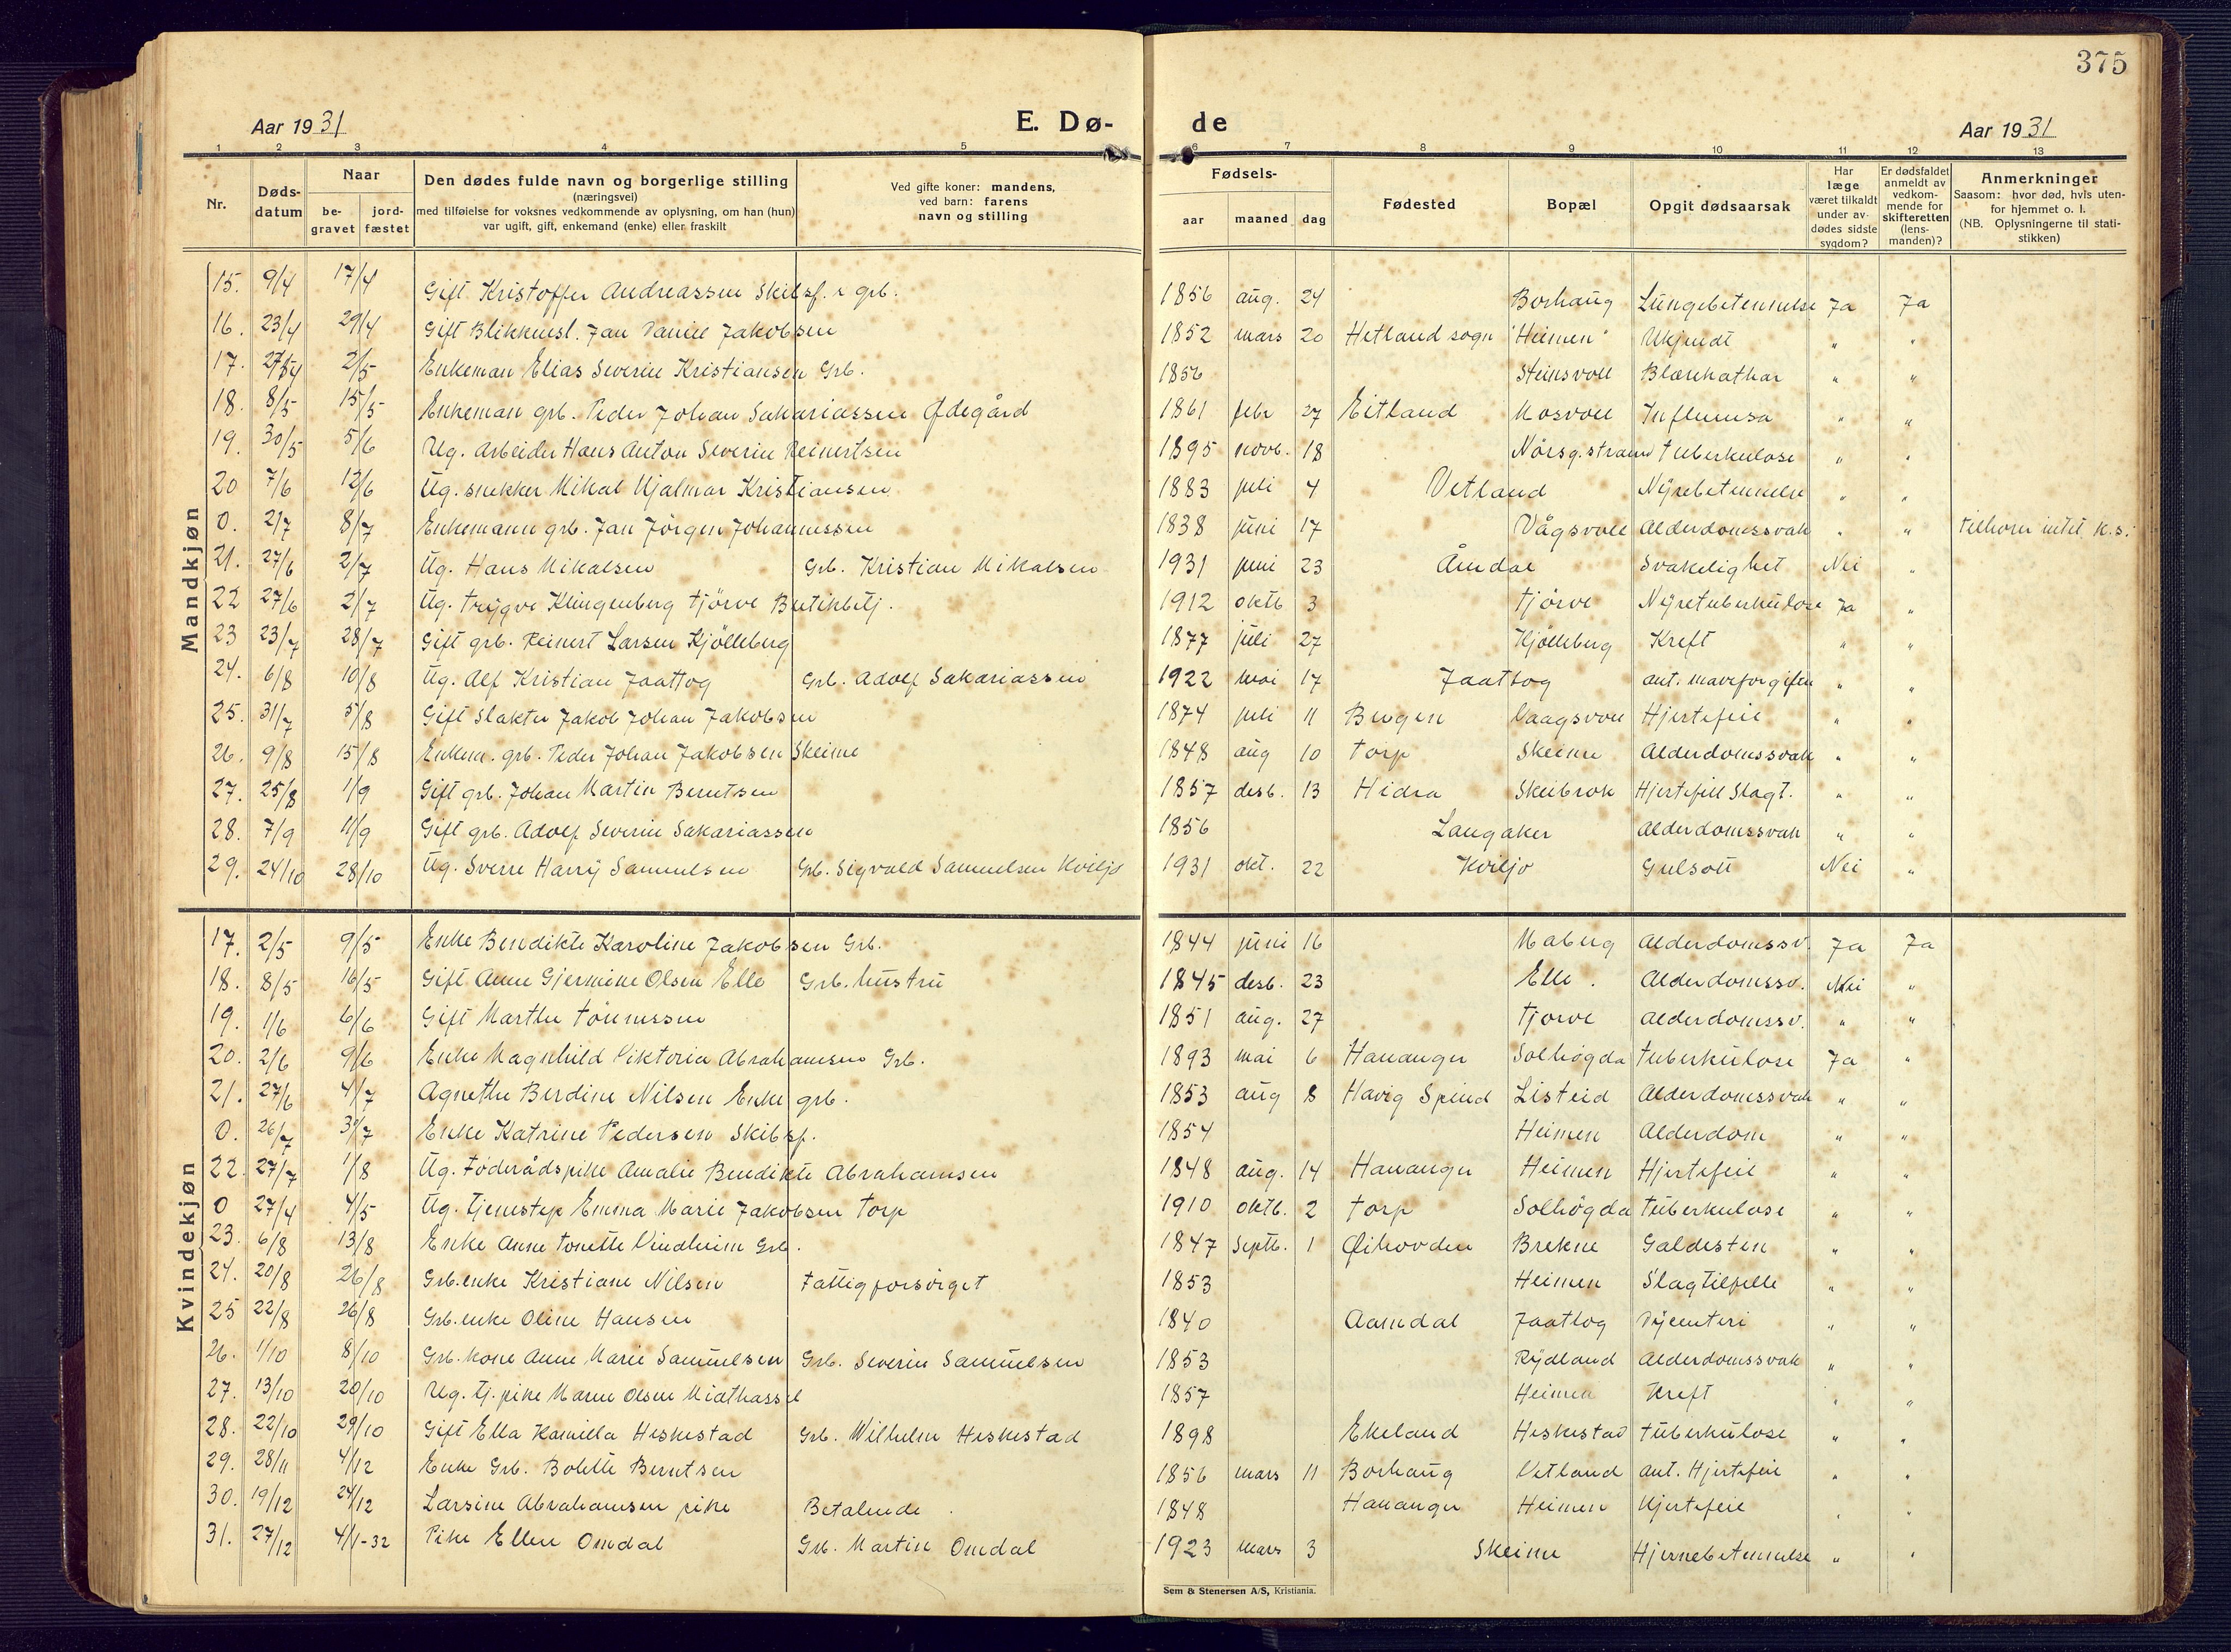 375
Aar 1931 E. Dø- de Aar 1931
1 2 3 4 5 6 7 8 9 10 11 12 13
Nr.
Døds-
datum
Naar
be-
gravet
jord-
fæstet
Den dødes fulde navn og borgerlige stilling
(næringsvei)
med tilføielse for voksnes vedkommende av oplysning, om han (hun)
var ugift, gift, enkemand (enke) eller fraskilt
Ved gifte koner: mandens,
ved barn: farens
navn og stilling
Fødsels-
aar maaned dag
Fødested
Bopæl
Opgit dødsaarsak
Har
læge
været tilkaldt
under av-
dødes sidste
sygdom?
Er dødsfaldet
anmeldt av
vedkom-
mende for
skifteretten
(lens-
manden)?
Anmerkninger
Saasom: hvor død, hvis uten-
for hjemmet o. l.
(NB. Oplysningerne til stati-
stikken)
Mandkjøn
15. 9/4 17/4 Gift Kristoffer Andreassen Skibsf. & grb. 1856 aug. 24 Borhaug Lungebetennelse Ja Ja
16. 23/4 29/4 Gift Blikkensl. Jan Daniel Jakobsen 1852 mars 20 Hetland sogn "Heimen" Ukjendt " "
17. 27/4 2/5 Enkeman Elias Severin Kristiansen Grb. 1856 Steinsvoll Blærekathar " "
18. 8/5 15/5 Enkeman grb. Peder Johan Sakariassen Ødegård 1861 febr 27 Eitland Mosvoll Influensa " "
19. 30/5 5/6 Ug. Arbeider Hans Anton Severin Reinertsen 1895 novb. 18 Nørsg. strand Tuberkulose " "
20 7/6 12/6 Ug. snekker Mikal Hjalmar Kristiansen 1883 juli 4 Vetland Nyrebetennelse " "
0. 2/7 8/7 Enkemann grb. Jan Jörgen Johannessen 1838 juni 17 Vågsvoll Alderdomssvak " " Tilhører intet k.s.
21. 27/6 2/7 Ug. Hans Mikalsen Grb. Kristian Mikalsen 1931 juni 23 Åmdal Svakelighet Nei "
22 27/6 2/7 Ug. Trygve Klingenberg Tjörve Butikbetj. 1912 oktb 3 Tjörve Nyretuberkulose Ja "
23 23/7 28/7 Gift grb. Reinert Larsen Kjölleberg 1877 juli 27 Kjölleberg Kreft " "
24. 6/8 10/8 Ug. Alf Kristian Jaattog Grb. Adolf Sakariassen 1922 mai 17 Jaattog ant. maveforgiften " "
25. 31/7 5/8 Gift Slakter Jakob Johan Jakobsen 1874 juli 11 Bergen Vaagsvoll Hjertefeil " "
26. 9/8 15/8 Enkem. grb. Peder Johan Jakobsen Skeime 1848 aug 10 Torp Skeime Alderdomssvak " "
27. 25/8 1/9 Gift grb. Johan Martin Berntsen 1857 desb. 13 Hidra Skeibrok Hjertefeil Slagt. " "
28. 7/9 11/9 Gift grb. Adolf Severin Sakariassen 1856 Langaker Alderdomssvak " "
29. 24/10 28/10 Ug. Sverre Harry Samuelsen Grb. Sigvald Samuelsen Kviljo 1931 okt. 22 Kviljo Gulsott Nei "
Kvindekjøn
17. 2/5 9/5 Enke Bendikte Karoline Jakobsen Grb. 1844 juni 16 Maberg Alderdomssv. Ja Ja
18. 8/5 16/5 Gift Anne Gjermine Olsen Elle Grb. hustru 1845 desb. 23 Elle. Alderdomssv. Nei "
19. 1/6 6/6 Gift Marthe Tönnessen 1851 aug. 27 Tjorve Alderdomssv. " "
20. 2/6 9/6 Enke Magnhild Viktoria Abrahamsen Grb. 1893 mai 6 Hananger Solhøgda Tuberkulose Ja "
21. 27/6 4/7 Agnethe Berdine Nilsen Enke grb. 1853 aug 8 Havig Spind Listeid Alderdomssvak " "
0. 26/7 31/7 Enke Katrine Pedersen Skibsf. 1854 Heimen Alderdom " "
22. 27/7 1/8 Ug. Föderådspike Amalie Bendikte Abrahamsen 1848 aug. 14 Hananger Heimen Hjertefeil " "
0 27/4 4/5 Ug. Tjenstep Emma Marie Jakobsen Torp 1910 oktb. 2 Torp Solhøgda Tuberkulose " "
23. 6/8 13/8 Enke Anne Tonette Vindheim Grb. 1847 Septb. 1 Øihovden Brekne Galdesten " "
24. 20/8 26/8 Grb.enke Kristiane Nilsen Fattigforsörget 1853 Heimen Slagtilfelle " "
25 22/8 26/8 Grb.enke Oline Hansen 1840 Aamdal Jaattog Dysenteri " "
26. 1/10 8/10 Grb. kone Anne Marie Samuelsen Grb. Severin Samuelsen 1853 Rydland Alderdomssvak " "
27. 13/10 20/10 Ug. Tj. pike Maren Olsen Midthassel 1857 Heimen Kreft " "
28. 22/10 29/10 Gift Ella Kamilla Heskestad Grb. Wilhelm Heskestad 1898 Ekeland Heskestad Tuberkulose " "
29. 28/11 4/12 Enke Grb. Bolette Berntsen 1856 mars 11 Borhaug Vetland Ant. Hjertefeil " "
30. 19/12 24/12 Larsine Abrahamsen pike Betalende 1848 Hananger Heimen Hjertefeil " "
31. 27/12 4/1-32 Pike Ellen Omdal Grb. Martin Omdal 1923 mars 3 Skeime Hjernebetennelse " "
Sem & Stenersen A/S, Kristiania.